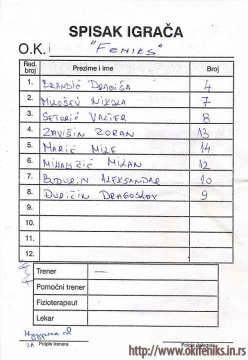 SPISAK IGRAČA
O.K. "FENIKS"
Red. broj Prezime i ime Broj
1. BRANDIĆ DRAGIŠA 4
2. MILOŠEV NIKOLA 7
3. VALTER 8
4. ZAVIŠIN ZORAN 13
5. MARIĆ MILE 14
6. MIHAJLIĆ MILAN 12
7. BUDURIN ALEKSANDAR 10
8. ĐURIČIN DRAGOSLAV 9
9.
10.
11.
12.
Trener —
Pomoćni trener
Fizioterapeut
Lekar
Potpis trenera Potpis
http://www.okfeniks.in.rs